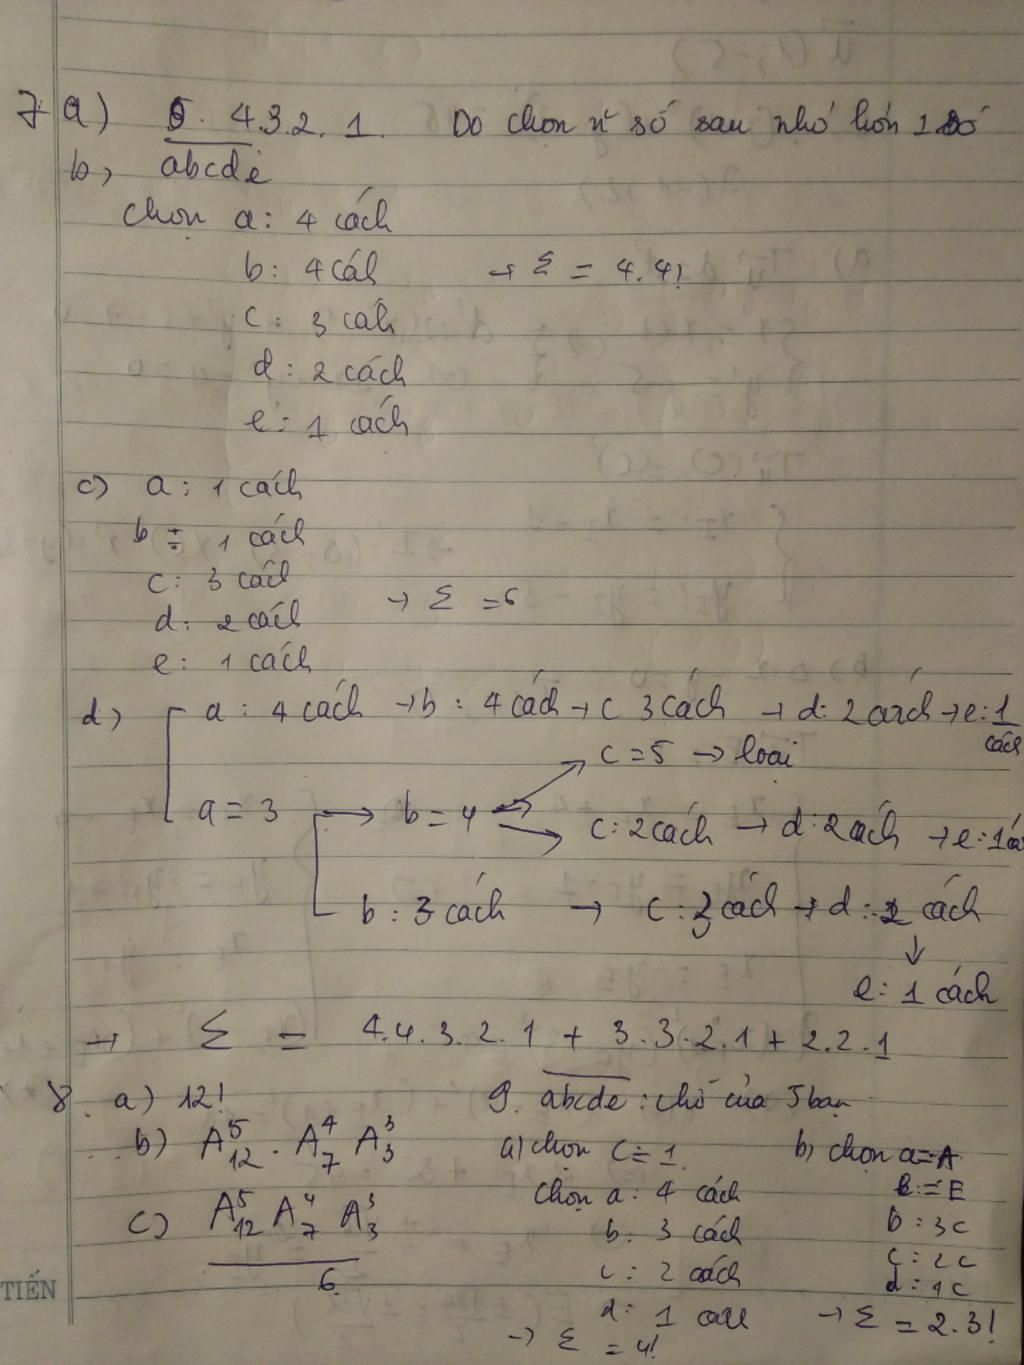 7 a) 5. 4.3.2.1. Do chọn số sau nhỏ hơn 1 số
b, abcde
Chọn a: 4 cách
b: 4 cách → Σ = 4.4!
c: 3 cách
d: 2 cách
e: 1 cách
c) a: 1 cách
b: 1 cách
c: 3 cách
d: 2 cách → Σ = 6
e: 1 cách
d) a: 4 cách → b: 4 cách → c 3 cách → d: 2 cách → e: 1 cách
c = 5 → loại
a = 3 → b = 4 → c: 2 cách → d: 2 cách → e: 1
b: 3 cách → c: 3 cách → d: 2 cách
↓
e: 1 cách
→ Σ = 4.4.3.2.1 + 3.3.2.1 + 2.2.1
8. a) 12!
b) A⁵₁₂ . A⁴₇ A³₃
c) A⁵₁₂ A⁴₇ A³₃ / 6
9. abcde: chỗ của 5 bạn
a) chọn c = 1
Chọn a: 4 cách
b: 3 cách
c: 2 cách
d: 1 cách
→ Σ = 4!
b) chọn a = A
e = E
b: 3c
c: 2c
d: 1c
→ Σ = 2.3!
TIẾN